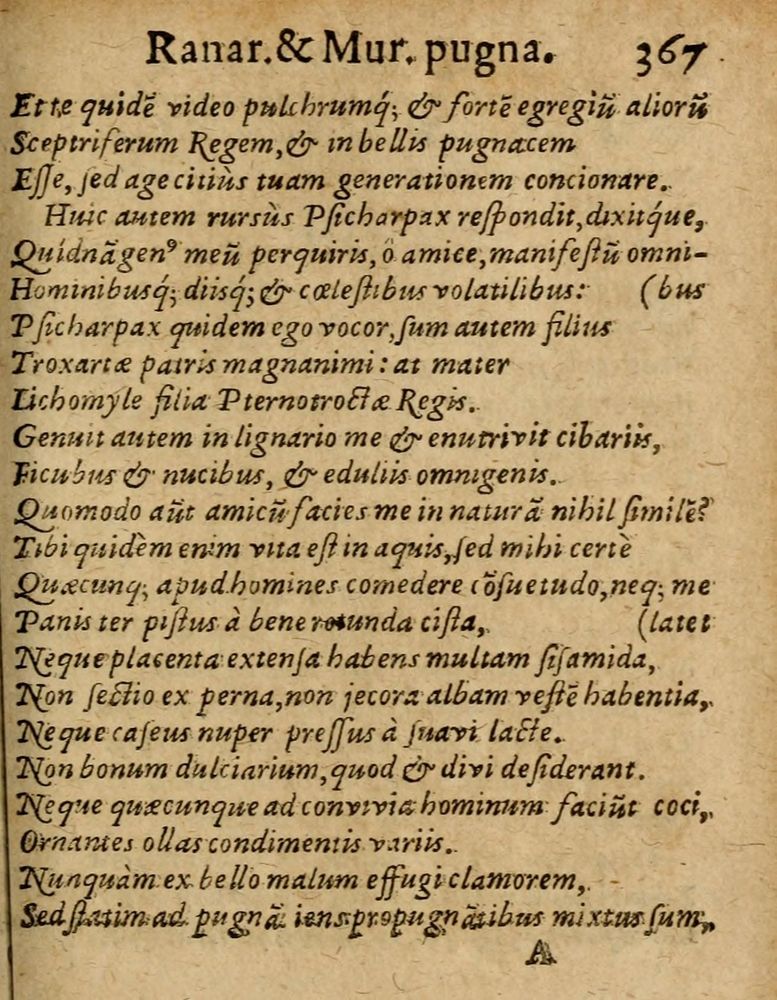 Ranar. & Mur. pugna. 367
Et te quidē video pulchrumq́; & fortē egregiū aliorū
Sceptriferum Regem, & in bellis pugnacem
Eſſe, ſed age citiùs tuam generationem concionare.
Huic autem rursùs Pſicharpax reſpondit, dixitq́ue,
Quidnā genꝰ meū perquiris, ô amice, manifeſtū omni-
Hominibusq́; diisq́; & cœleſtibus volatilibus: (bus
Pſicharpax quidem ego vocor, ſum autem filius
Troxartæ patris magnanimi: at mater
Lichomyle filia Pternotroctæ Regis.
Genuit autem in lignario me & enutrivit cibariis,
Ficubus & nucibus, & eduliis omnigenis.
Quomodo aūt amicū facies me in naturâ nihil ſimilē?
Tibi quidèm enim vita eſt in aquis, ſed mihi certè
Quæcunq; apud homines comedere cōſuetudo, neq; me
Panis ter piſtus à bene rotunda ciſta, (latet
Neque placenta extenſa habens multam ſiſamida,
Non ſectio ex perna, non jecora albam veſtē habentia,
Neque caſeus nuper preſſus à ſuavi lacte.
Non bonum dulciarium, quod & divi deſiderant.
Neque quæcunque ad convivia hominum faciūt coci,
Ornantes ollas condimentis variis.
Nunquàm ex bello malum effugi clamorem,
Sed ſtatim ad pugnā iens propugnātibus mixtus ſum,
A